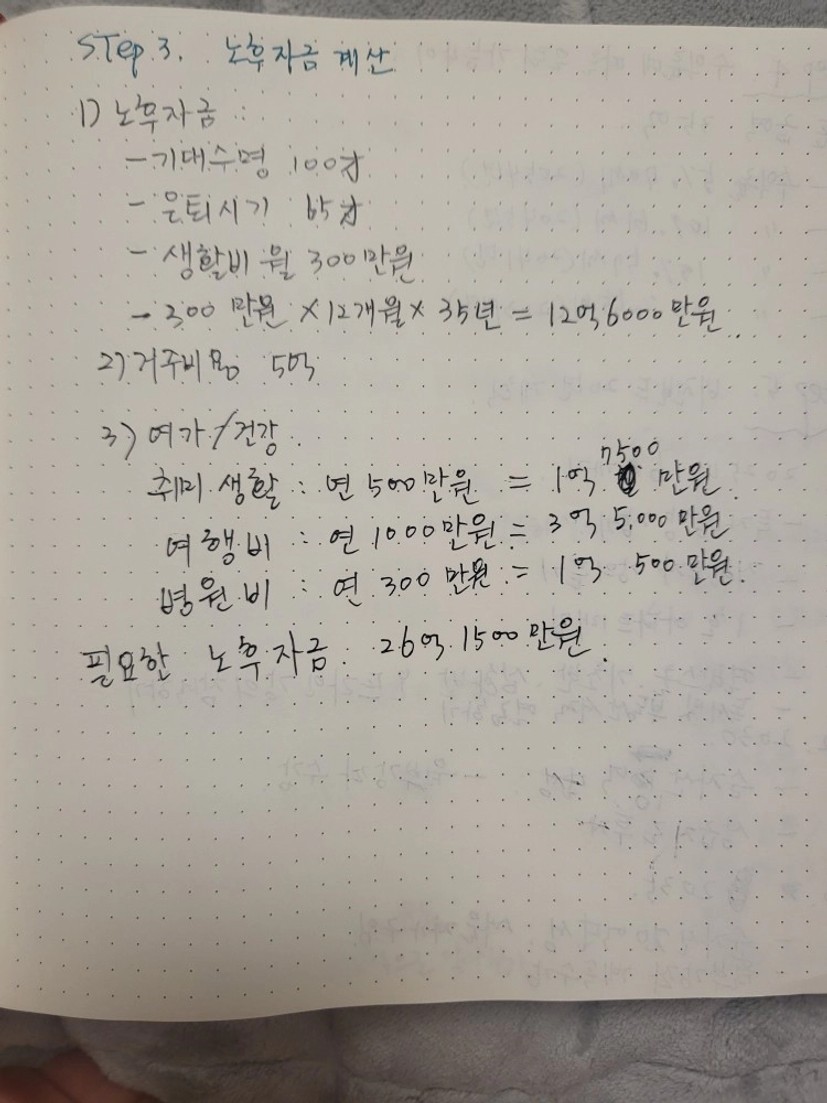 STep 3. 노후자금 계산
1) 노후자금
- 기대수명 100才
- 은퇴시기 65才
- 생활비 월 300만원
- 300만원 × 12개월 × 35년 = 12억 6000만원.
2) 거주비용 5억
3) 여가/건강
취미생활 : 연 500만원 = 1억 7500만원.
여행비 : 연 1000만원 = 3억 5,000만원
병원비 : 연 300만원 = 1억 500만원.
필요한 노후자금. 26억 1500만원.